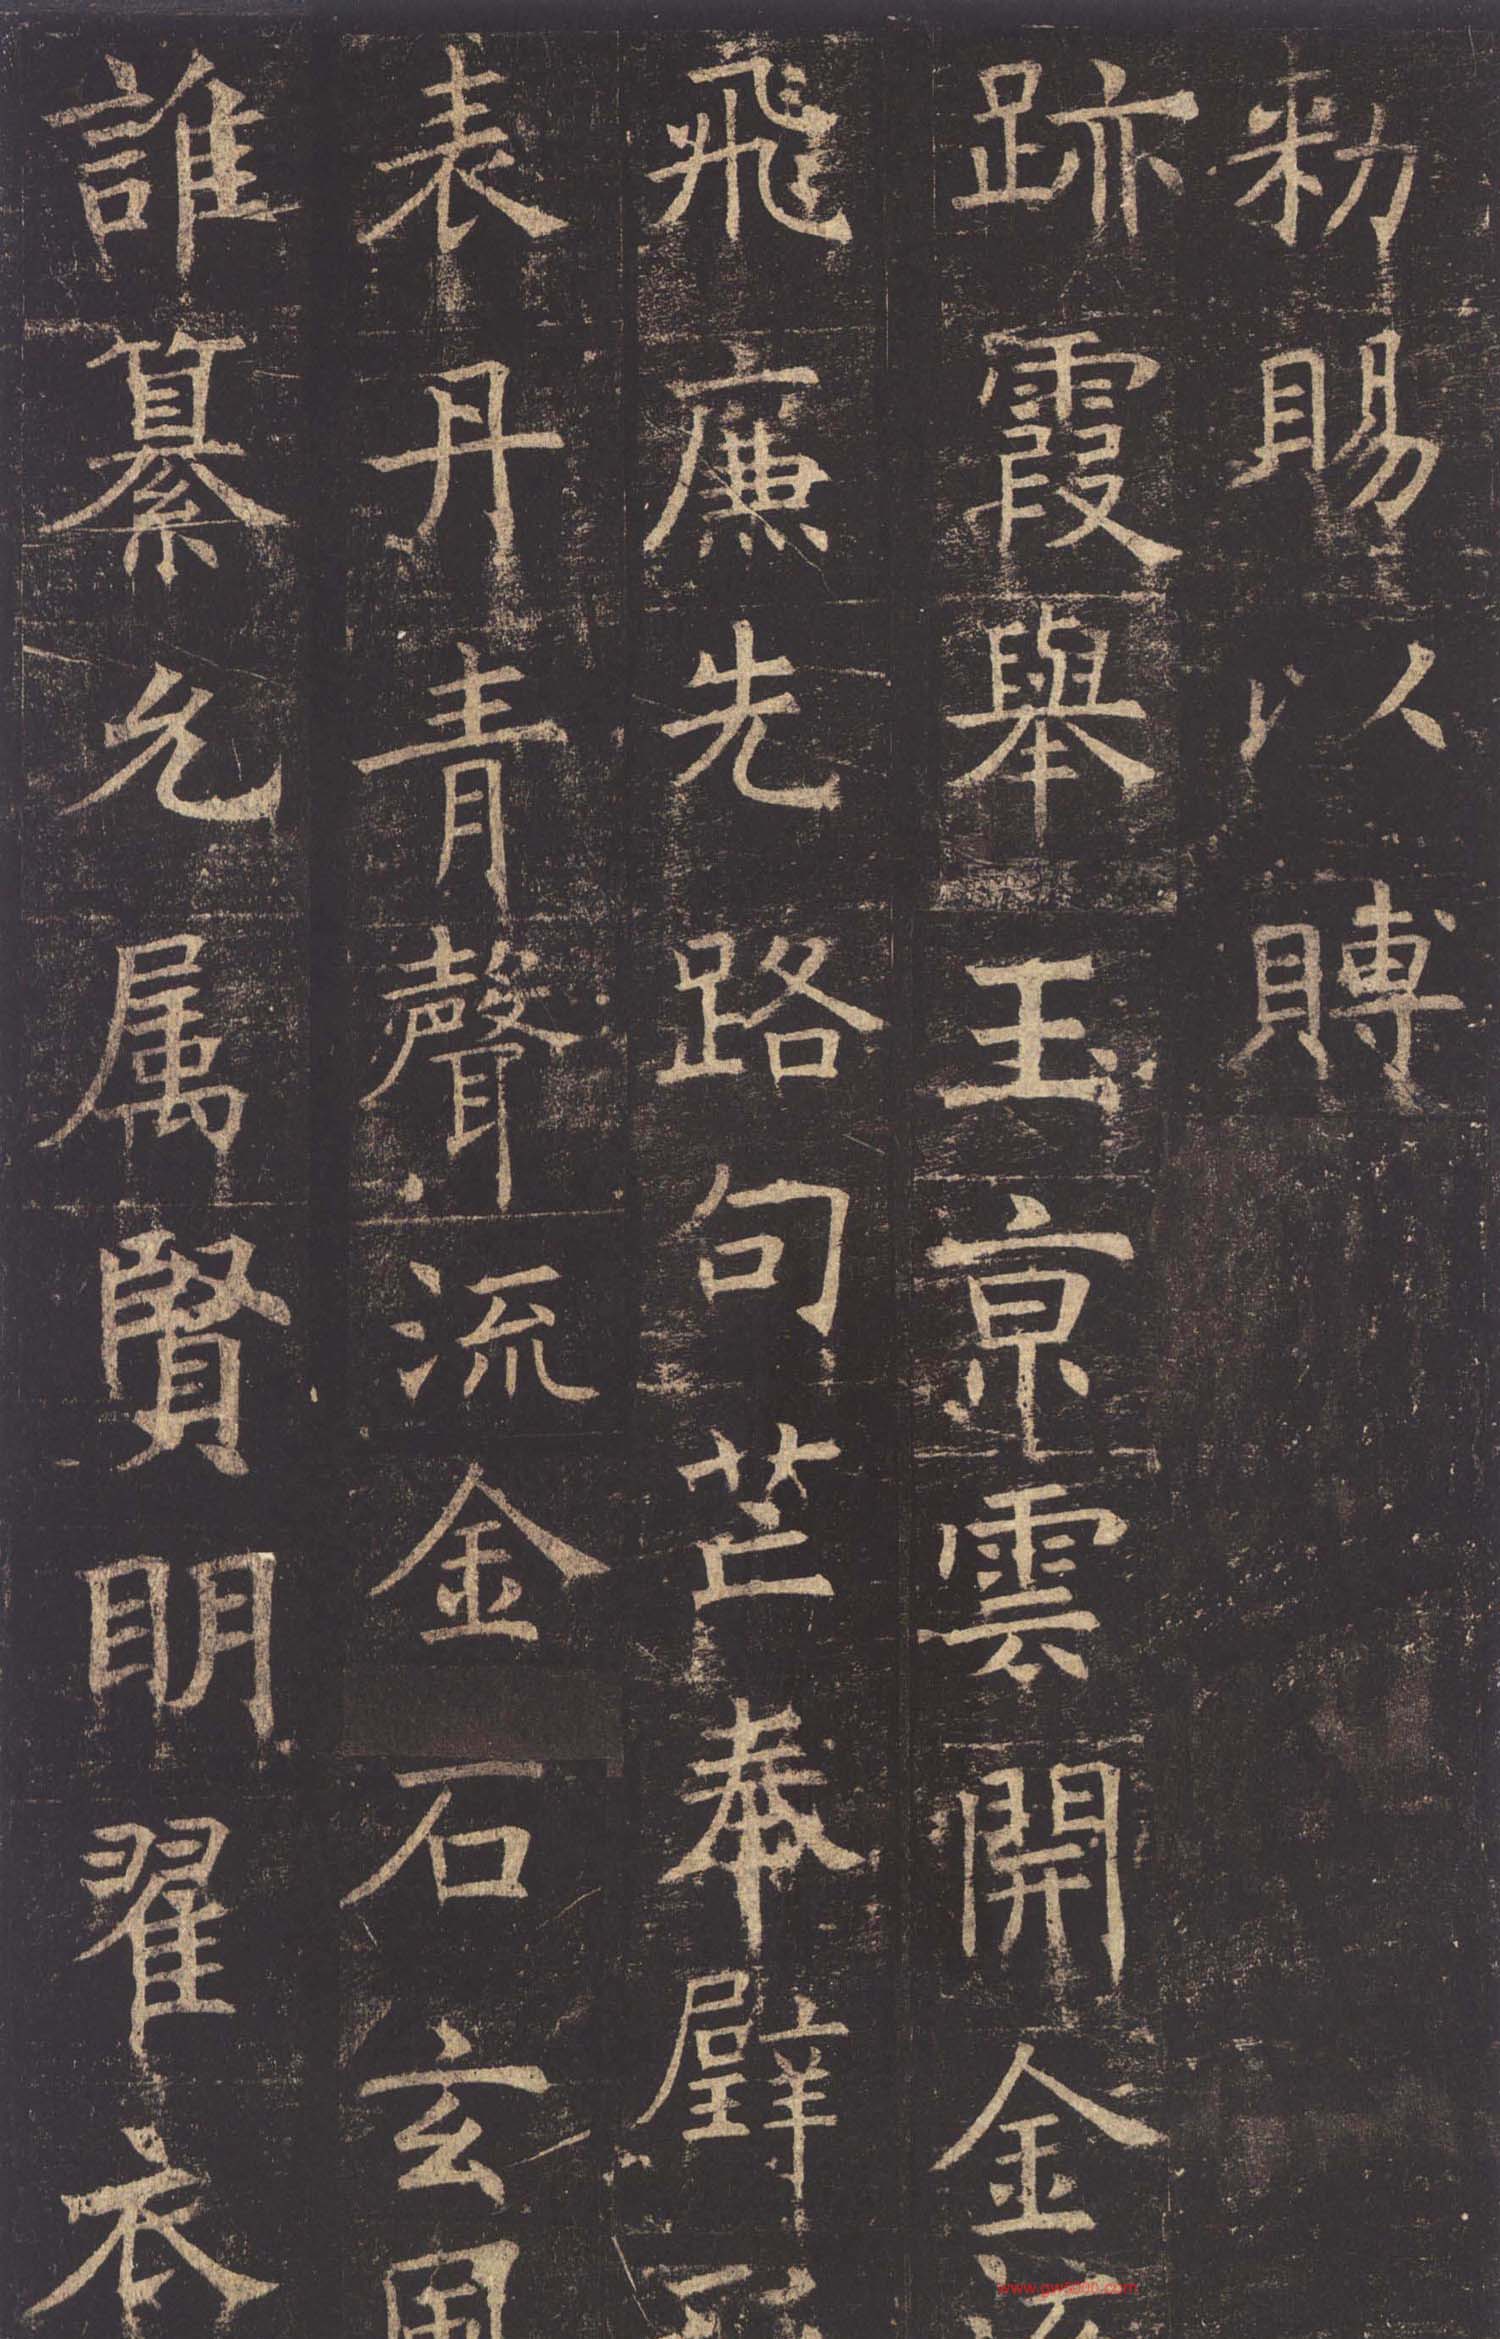 勑賜以賻
跡霞舉玉京雲開金
飛廉先路句芒奉壁
表丹青聲流金石玄風
誰纂允属賢明翟衣
www.gwsbox.com